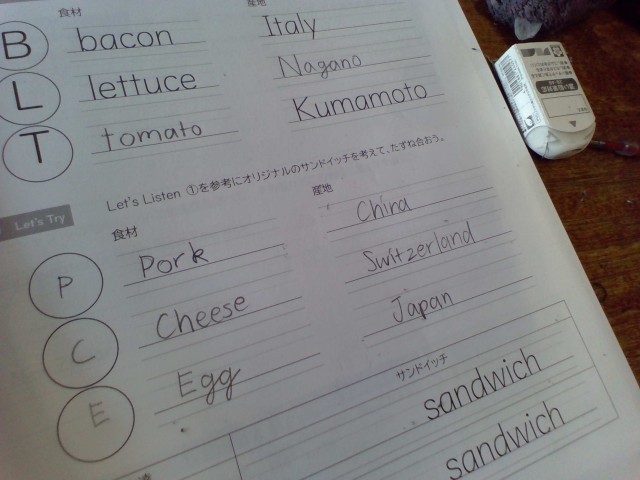 食材 産地
B bacon Italy
L lettuce Nagano
T tomato Kumamoto
Let's Try
Let's Listen ①を参考にオリジナルのサンドイッチを考えて、たずね合おう。
食材 産地
P Pork China
C Cheese Switzerland
E Egg Japan
サンドイッチ
sandwich
sandwich